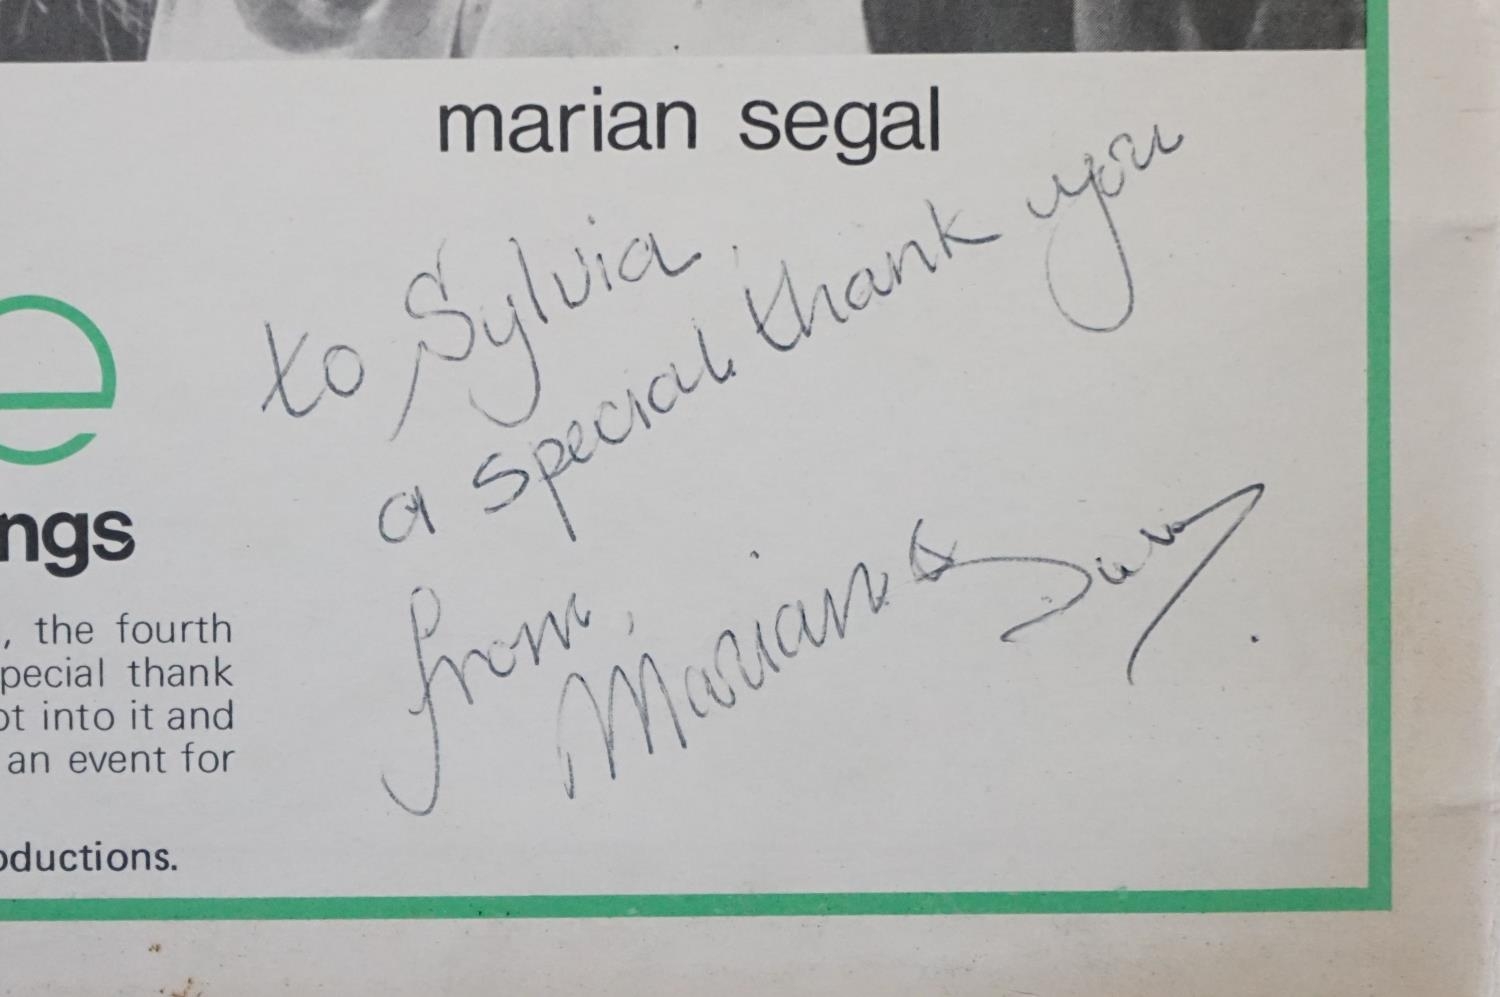 marian segal
to Sylvia
a special thank you
from,
Marian &
e
ngs
, the fourth
pecial thank
ot into it and
an event for
oductions.